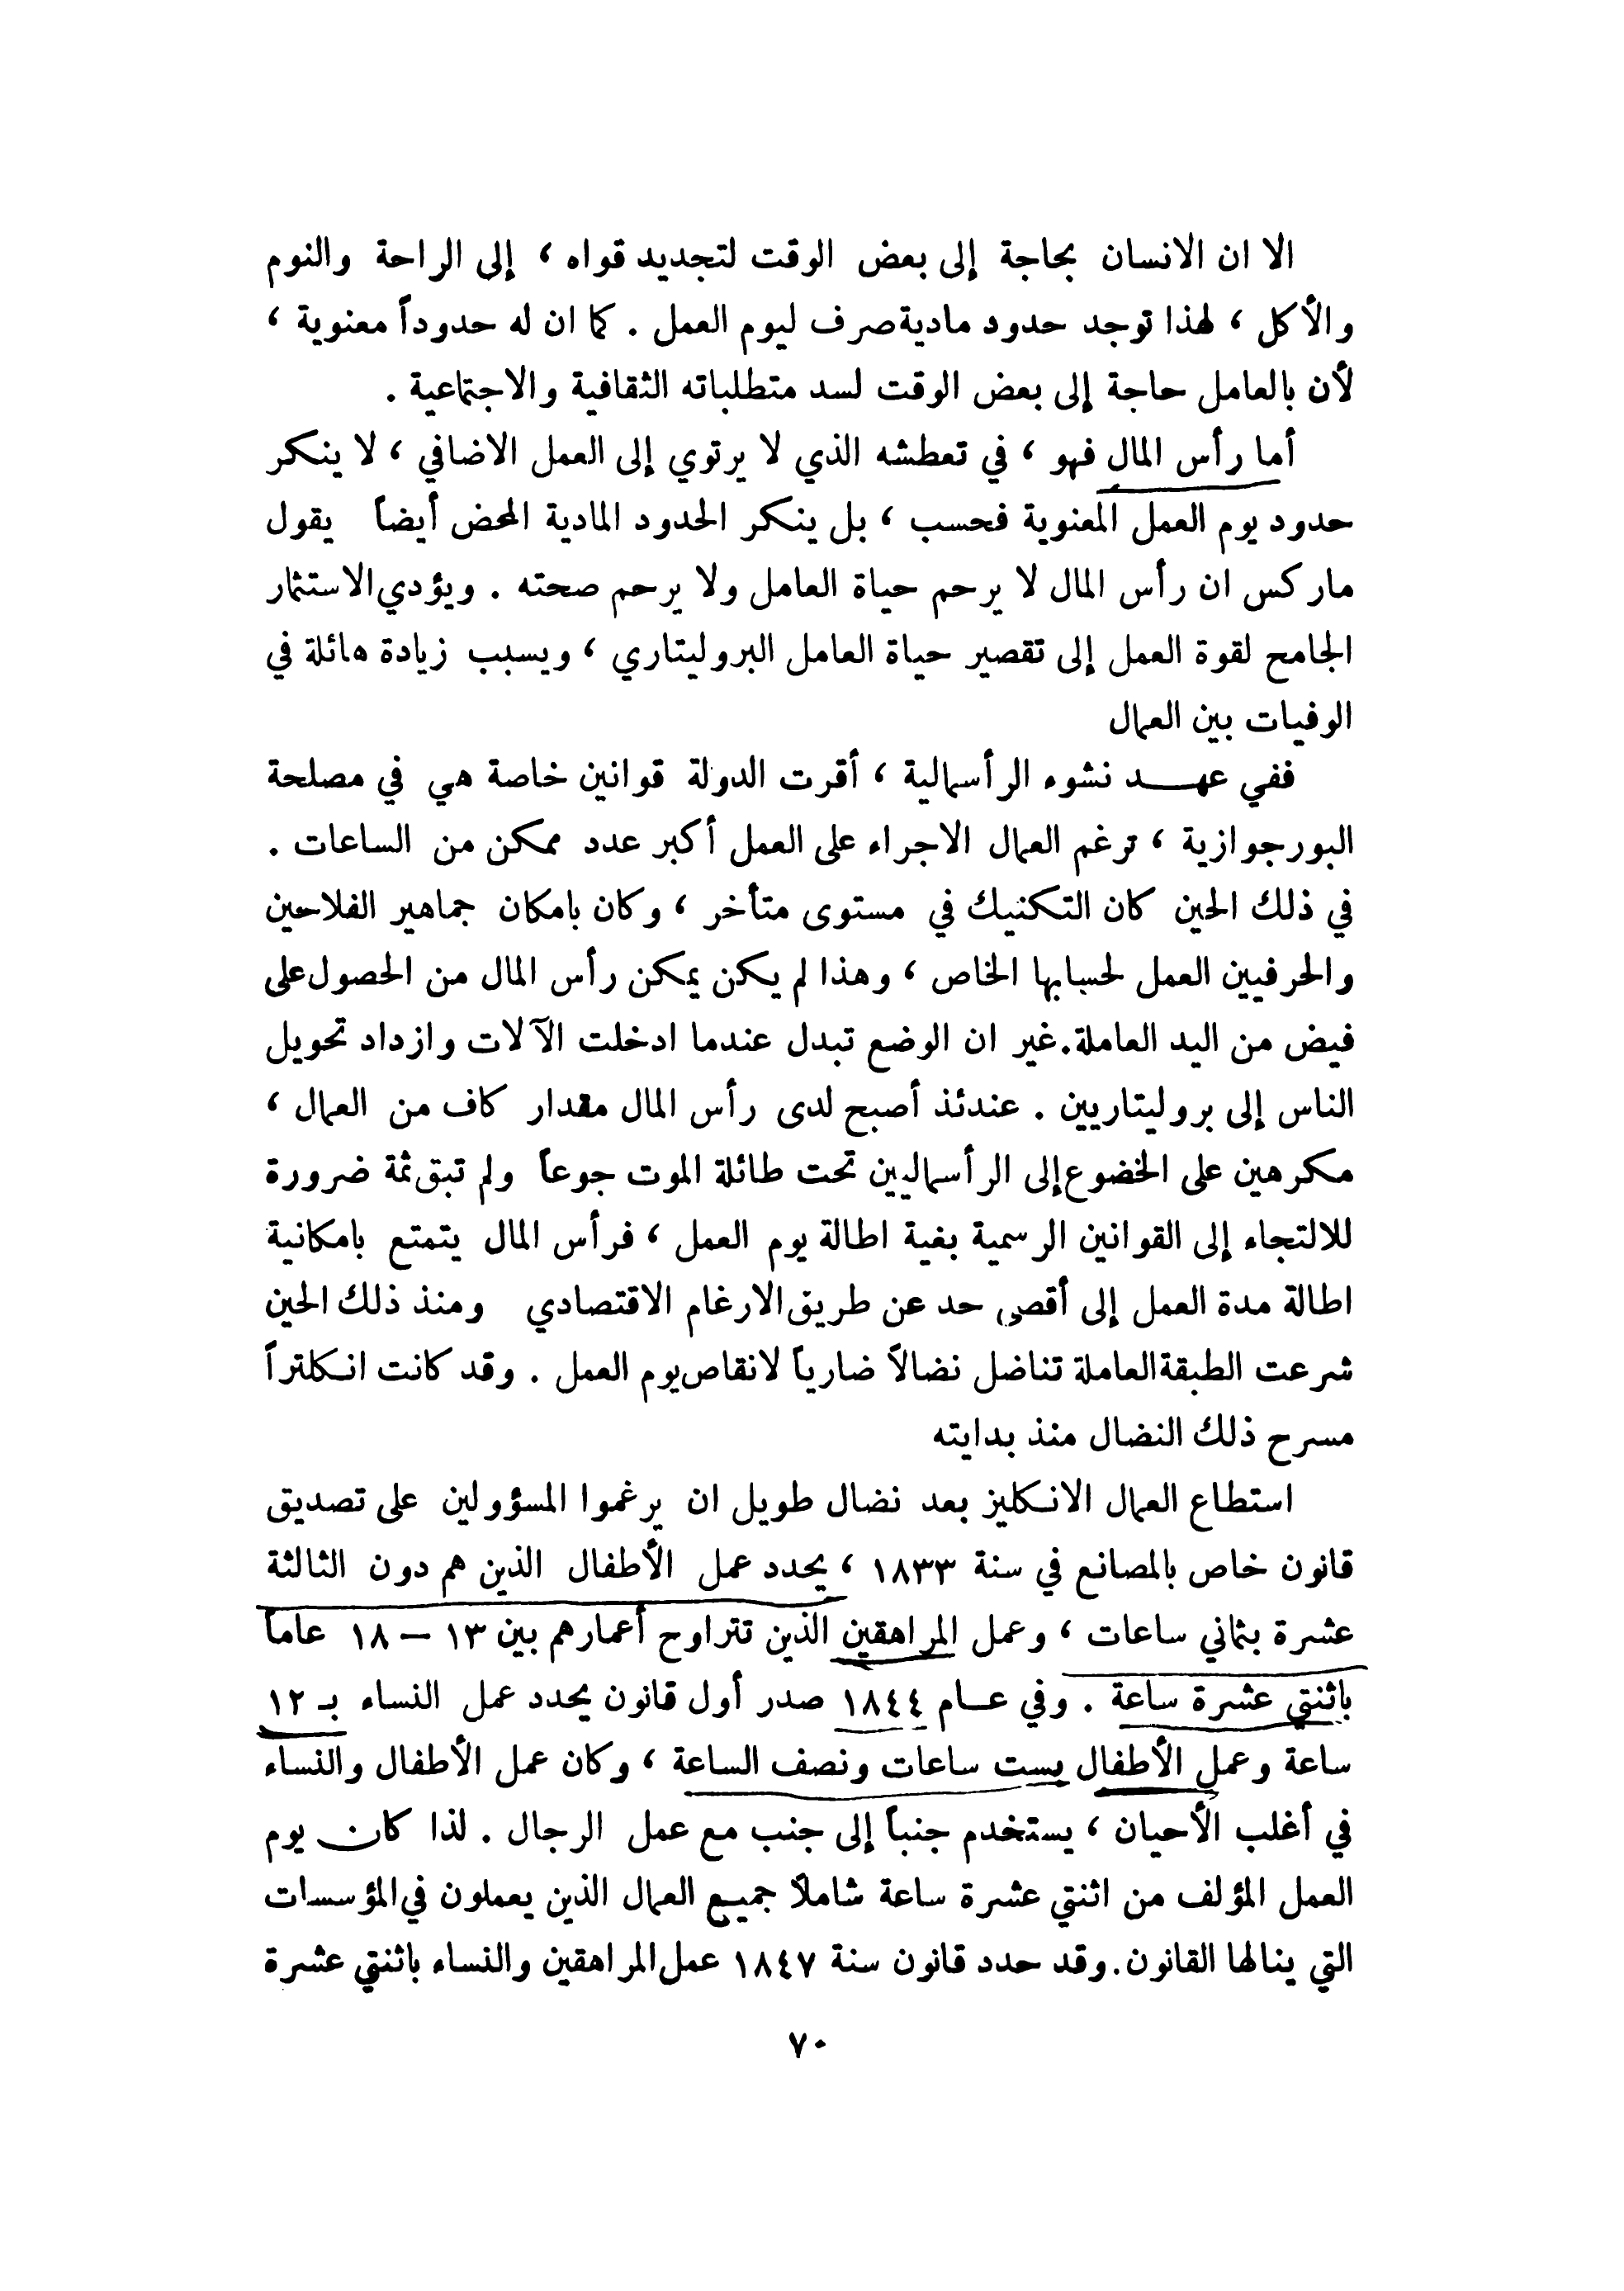 الا ان الانسان بحاجة إلى بعض الوقت لتجديد قواه ، إلى الراحة والنوم
والأكل ، لهذا توجد حدود مادية صرف ليوم العمل . كما ان له حدوداً معنوية ،
لأن بالعامل حاجة إلى بعض الوقت لسد متطلباته الثقافية والاجتماعية .
أما رأس المال فهو ، في تعطشه الذي لا يرتوي إلى العمل الاضافي ، لا ينكر
حدود يوم العمل المعنوية فحسب ، بل ينكر الحدود المادية المحض أيضاً يقول
ماركس ان رأس المال لا يرحم حياة العامل ولا يرحم صحته . ويؤدي الاستثمار
الجامح لقوة العمل إلى تقصير حياة العامل البروليتاري ، ويسبب زيادة هائلة في
الوفيات بين العمال
ففي عهد نشوء الرأسمالية ، أقرت الدولة قوانين خاصة هي في مصلحة
البورجوازية ، ترغم العمال الاجراء على العمل أكبر عدد ممكن من الساعات .
في ذلك الحين كان التكنيك في مستوى متأخر ، وكان بامكان جماهير الفلاحين
والحرفيين العمل لحسابها الخاص ، وهذا لم يكن يمكن رأس المال من الحصول على
فيض من اليد العاملة . غير ان الوضع تبدل عندما ادخلت الآلات وازداد تحويل
الناس إلى بروليتاريين . عندئذ أصبح لدى رأس المال مقدار كاف من العمال ،
مكرهين على الخضوع إلى الرأسماليين تحت طائلة الموت جوعاً ولم تبق ثمة ضرورة
للالتجاء إلى القوانين الرسمية بغية اطالة يوم العمل ، فرأس المال يتمتع بامكانية
اطالة مدة العمل إلى أقصى حد عن طريق الارغام الاقتصادي ومنذ ذلك الحين
شرعت الطبقة العاملة تناضل نضالاً ضارياً لانقاص يوم العمل . وقد كانت انكلترأ
مسرح ذلك النضال منذ بدايته
استطاع العمال الانكليز بعد نضال طويل ان يرغموا المسؤولين على تصديق
قانون خاص بالمصانع في سنة ١٨٣٣ ، يحدد عمل الأطفال الذين هم دون الثالثة
عشرة بثماني ساعات ، وعمل المراهقين الذين تتراوح أعمارهم بين ١٣ – ١٨ عاماً
باثنتي عشرة ساعة . وفي عام ١٨٤٤ صدر أول قانون يحدد عمل النساء بـ ١٢
ساعة وعمل الأطفال بست ساعات ونصف الساعة ، وكان عمل الأطفال والنساء
في أغلب الأحيان ، يستخدم جنباً إلى جنب مع عمل الرجال . لذا كان يوم
العمل المؤلف من اثنتي عشرة ساعة شاملاً جميع العمال الذين يعملون في المؤسسات
التي ينالها القانون . وقد حدد قانون سنة ١٨٤٧ عمل المراهقين والنساء باثنتي عشرة
٧٠